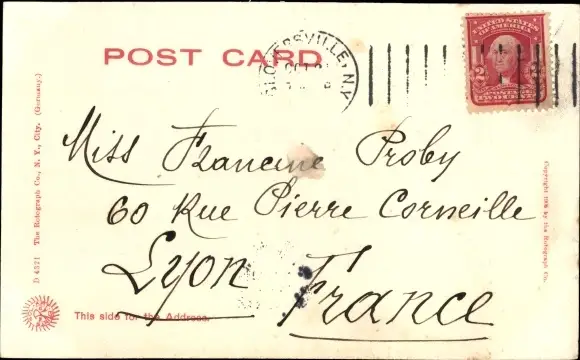 POST CARD
GLOVERSVILLE, N.Y.
OCT
UNITED STATES
OF AMERICA
2 2
POSTAGE
TWO CENTS
Miss Francine Proby
60 Rue Pierre Corneille
Lyon France
This side for the Address.
D 4321 The Rotograph Co., N. Y., City. (Germany.)
Copyright 1906 by the Rotograph Co.